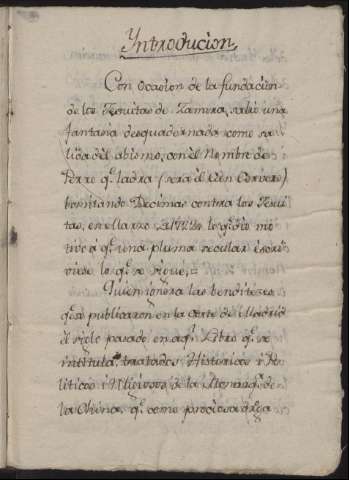 Introducion
Con Ocasion de la fundacion
de los Jesuitas de Zamora, salio una
fantasia desquadernada como sa-
lida del abismo, con el Nombre de
Perro q.e ladra (sera el Can Cervero)
bomitando Decimas contra los Jesui
tas, en el año lo q.e dio mo
tivo a q.e una pluma secular escri
viese lo q.e se sigue,=
Quien ignora las
q.e se publicaron en la Corte de Madrid
el siglo pasado, en aq.l Libro q.e se
intitula, tratados Historicos i Po
liticos i Religiosos de la Monarq.a de
la China, q.e como preciosa